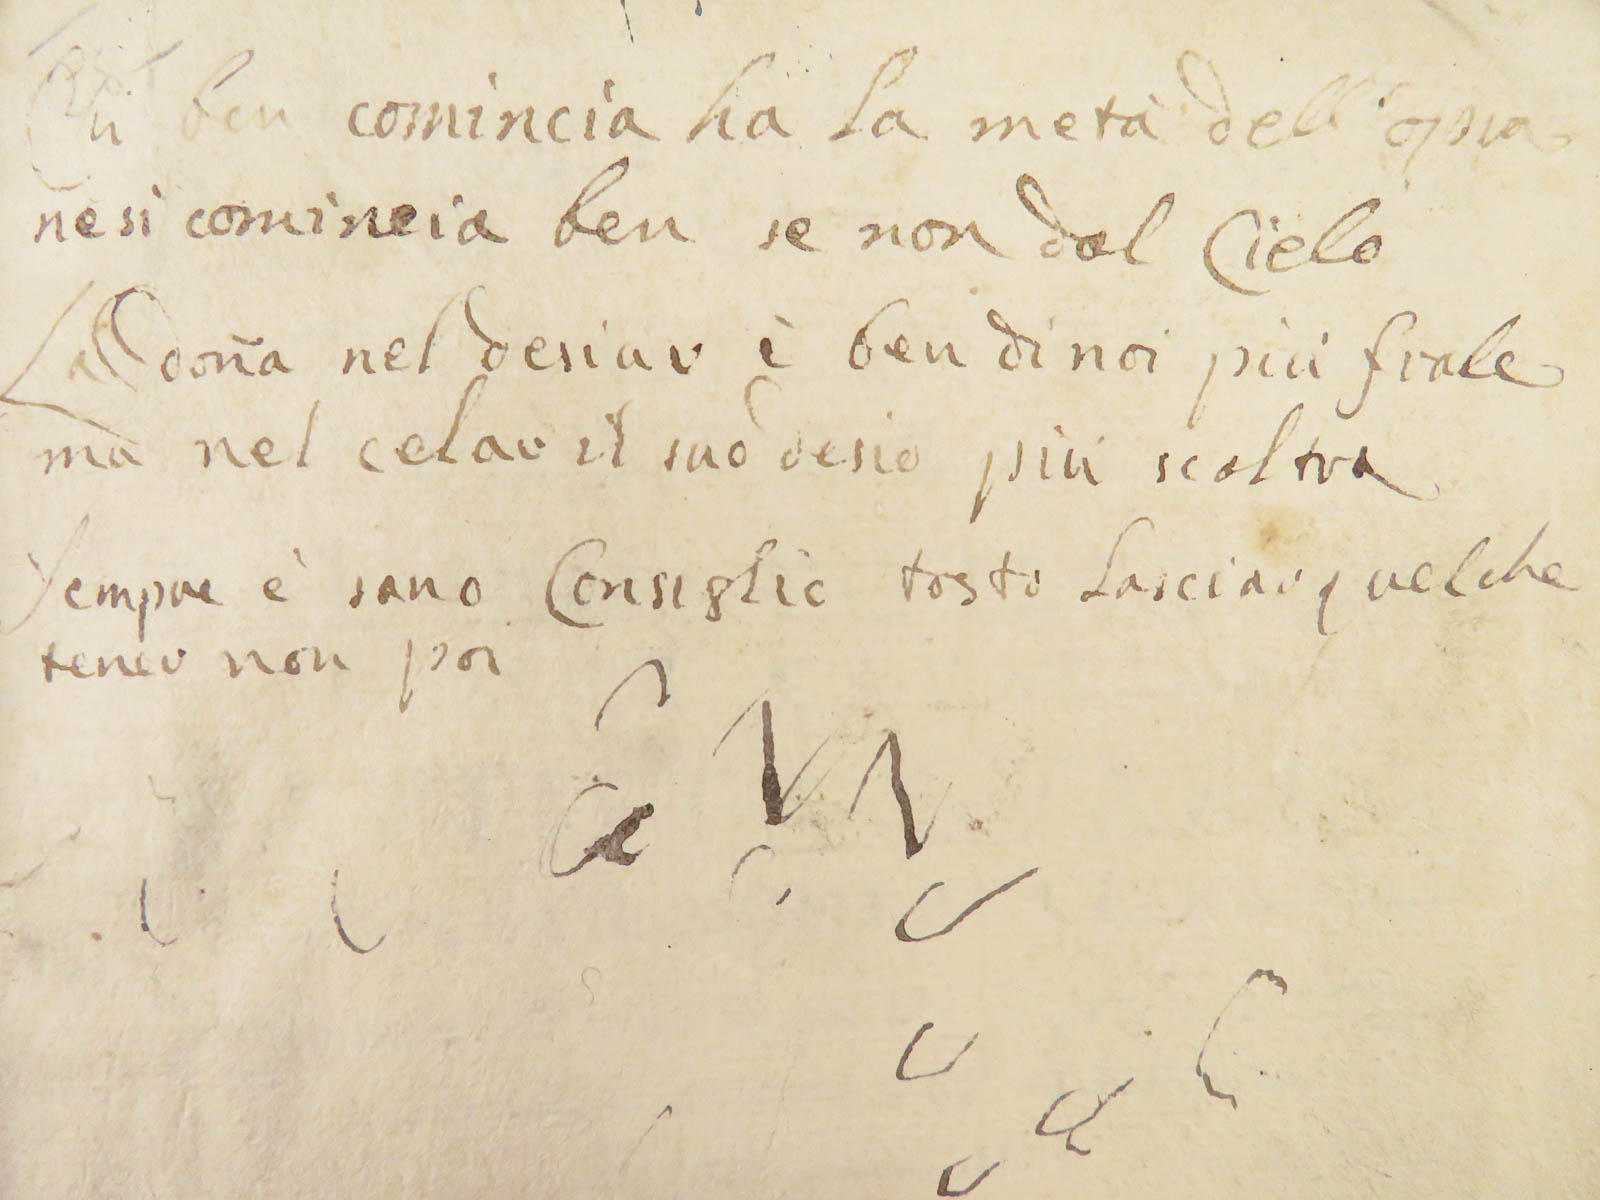 Chi ben comincia ha la metà dell'opra
ne si comincia ben se non dal Cielo
La doña nel desiar è ben di noi più frale
ma nel celar il suo desio più scaltra
Sempre è sano Consiglio tosto lasciar quelche
tener non poi